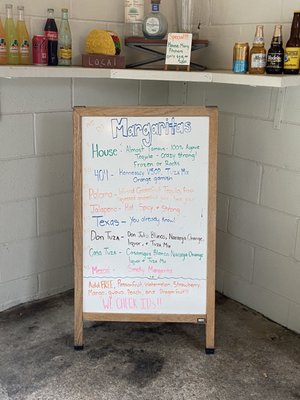 Special!!
LOCAL
Margaritas
House: Almost Famous - 100% Agave
Tequila - Crazy Strong!
Frozen or Rocks
Hennessy VSOP, Tuza Mix
Orange garnish
Paloma -
Jalapeno - Hot, Spicy, + Strong
Texas - You already know!
Don Tuza - Don Julio Blanco, Naranja Orange,
liqueur, + Tuza Mix
Casa Tuza - Casamigos Blanco, Naranja Orange
liqueur + Tuza Mix
Mezcal - Smoky Margarita
Add FREE, Passionfruit, Watermelon, Strawberry,
Mango, guava, Peach, and Dragonfruit!!
WE CHECK IDs!!